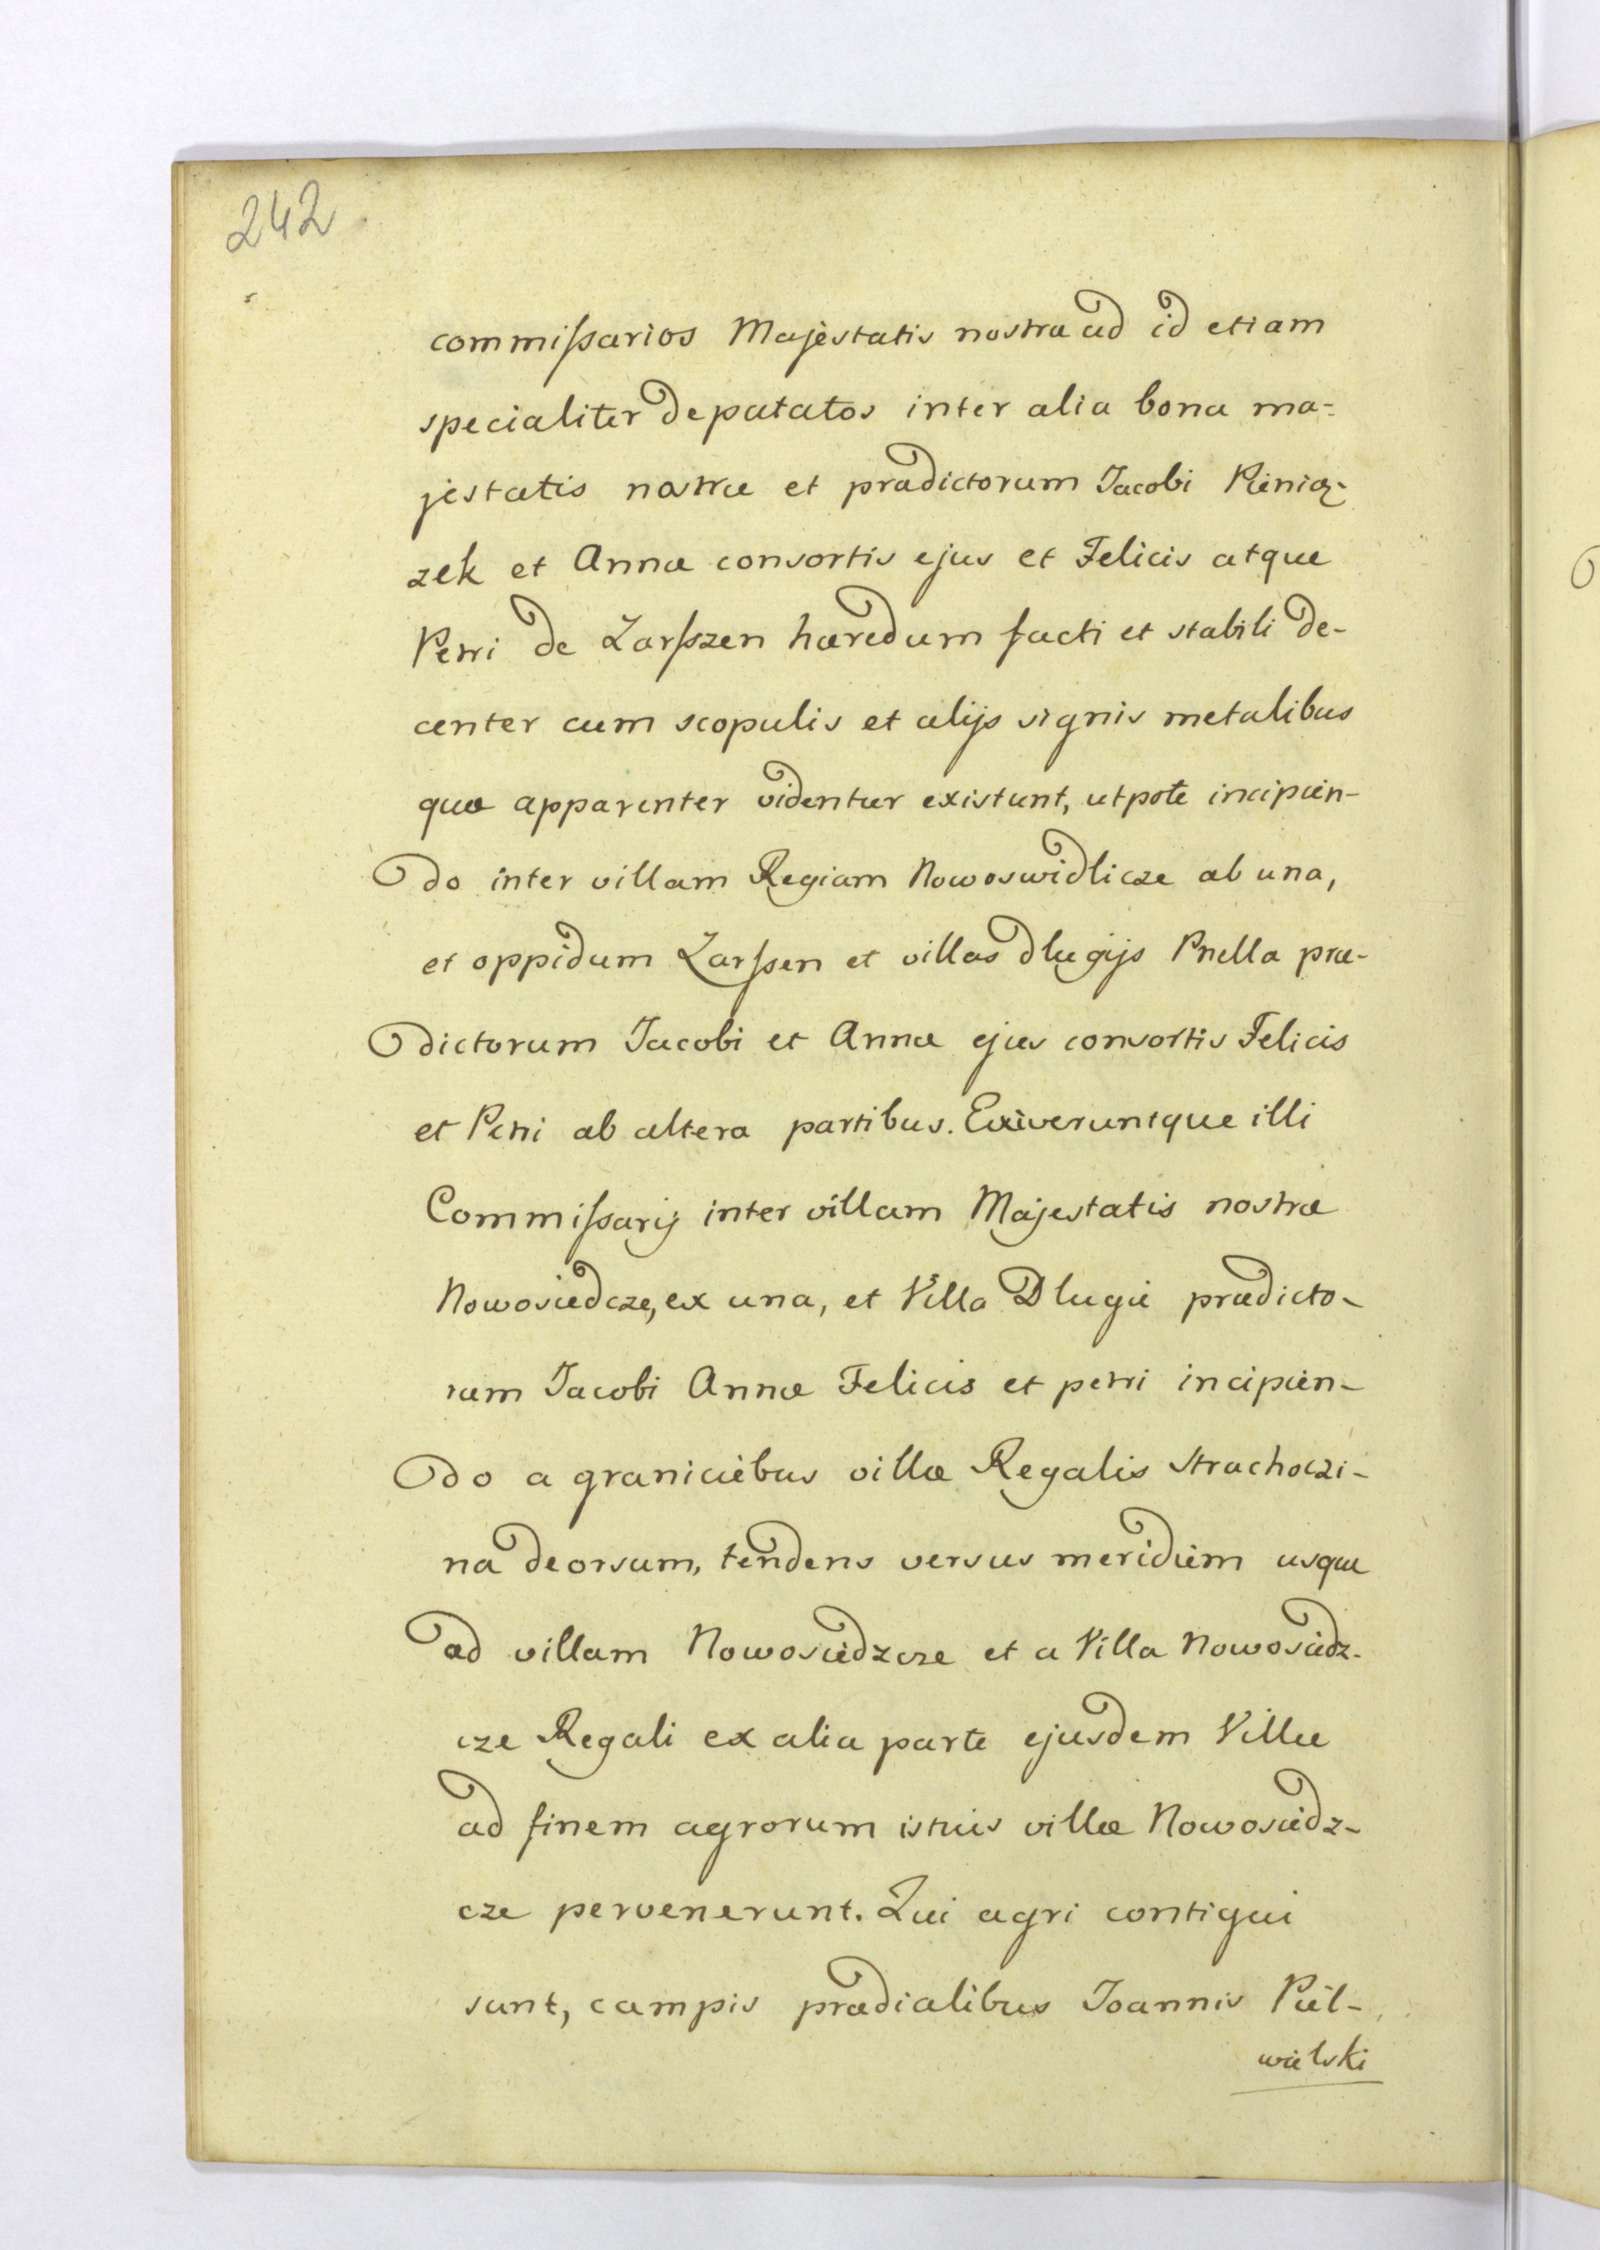 242
commissarios Majestatis nostræ ad id etiam
specialiter depatatos inter alia bona ma=
jestatis nostræ et prædictorum Jacobi Pieniąz-
zek et Annæ consortis ejus et Felicis atque
Petri de Zarsszen hæredum facti et stabili de-
center cum scopulis et alijs signis metalibus
quæ apparenter videntur existunt, utpote incipien-
do inter villam Regiam Nowoswidlicze ab una,
et oppidum Zarssen et villas Dlugijs Pnella præ-
dictorum Jacobi et Annæ ejus consortis Felicis
et Petri ab altera partibus. Exiveruntque illi
Commissarij inter villam Majestatis nostræ
Nowosiedcze, ex una, et Villa Dlugie prædicto-
rum Jacobi Annæ Felicis et petri incipien-
do a graniciebus villæ Regalis Strachoczi-
na deorsum, tendens versus meridiem usque
ad villam Nowosiedzcze et a Villa Nowosiedz-
cze Regali ex alia parte ejusdem Villæ
ad finem agrorum istius villæ Nowosiedz-
cze pervenerunt. Qui agri contigui
sunt, campis prædialibus Joannis Piel-
wielski